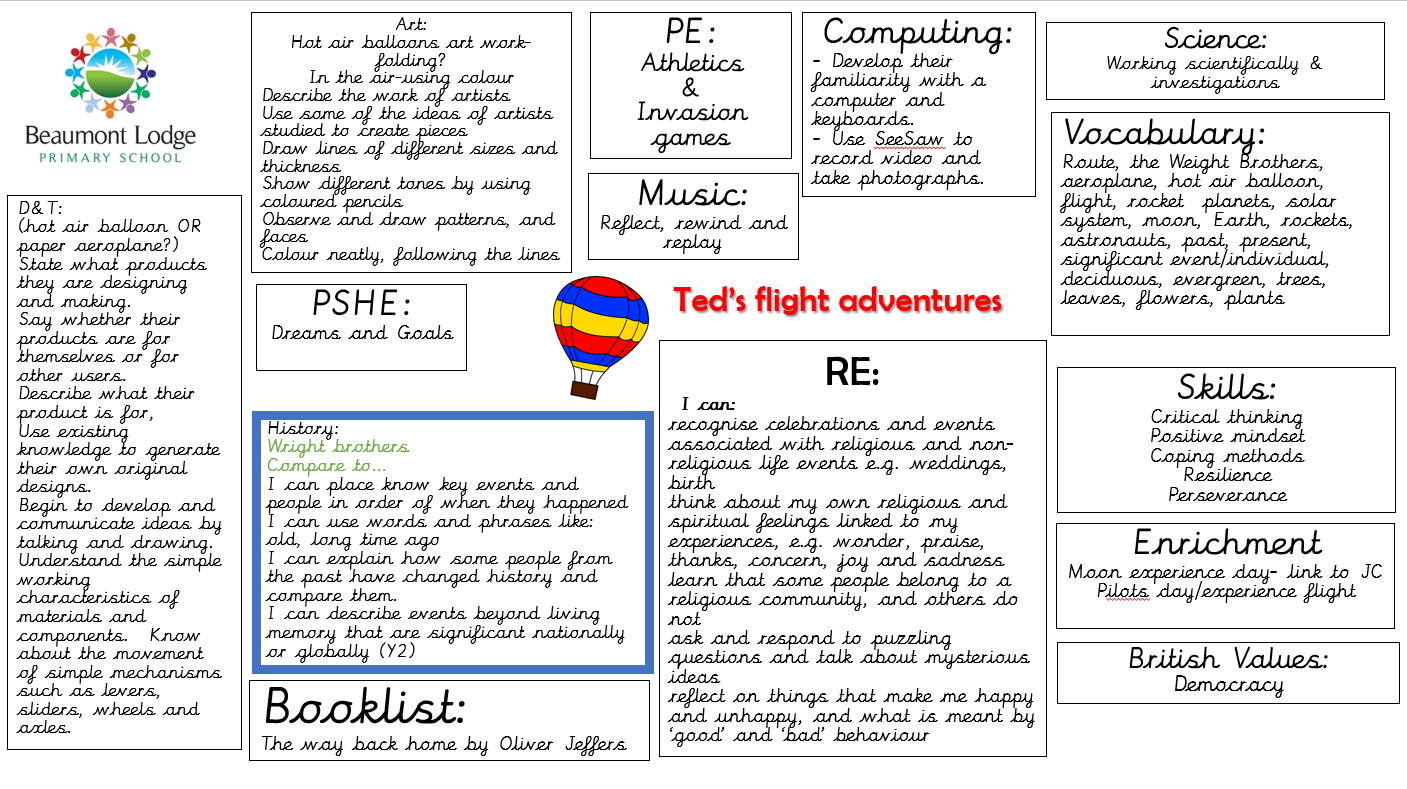 Beaumont Lodge
PRIMARY SCHOOL
D&T:
(hot air balloon OR
paper aeroplane?)
State what products
they are designing
and making.
Say whether their
products are for
themselves or for
other users.
Describe what their
product is for,
Use existing
knowledge to generate
their own original
designs.
Begin to develop and
communicate ideas by
talking and drawing.
Understand the simple
working
characteristics of
materials and
components.  Know
about the movement
of simple mechanisms
such as levers,
sliders, wheels and
axles.
Art:
Hot air balloons art work-
folding?
In the air-using colour
Describe the work of artists
Use some of the ideas of artists
studied to create pieces
Draw lines of different sizes and
thickness
Show different tones by using
coloured pencils
Observe and draw patterns, and
faces
Colour neatly, following the lines
PSHE:
Dreams and Goals
History:
Wright brothers
Compare to...
I can place know key events and
people in order of when they happened
I can use words and phrases like:
old, long time ago
I can explain how some people from
the past have changed history and
compare them.
I can describe events beyond living
memory that are significant nationally
or globally (Y2)
Booklist:
The way back home by Oliver Jeffers
PE:
Athletics
&
Invasion
games
Music:
Reflect, rewind and
replay
Computing:
- Develop their
familiarity with a
computer and
keyboards.
- Use SeeSaw to
record video and
take photographs.
Ted's flight adventures
RE:
I can:
recognise celebrations and events
associated with religious and non-
religious life events e.g. weddings,
birth
think about my own religious and
spiritual feelings linked to my
experiences, e.g. wonder, praise,
thanks, concern, joy and sadness
learn that some people belong to a
religious community, and others do
not
ask and respond to puzzling
questions and talk about mysterious
ideas
reflect on things that make me happy
and unhappy, and what is meant by
'good' and 'bad' behaviour
Science:
Working scientifically &
investigations
Vocabulary:
Route, the Weight Brothers,
aeroplane, hot air balloon,
flight, rocket  planets, solar
system, moon, Earth, rockets,
astronauts, past, present,
significant event/individual,
deciduous, evergreen, trees,
leaves, flowers, plants
Skills:
Critical thinking
Positive mindset
Coping methods
Resilience
Perseverance
Enrichment
Moon experience day- link to JC
Pilots day/experience flight
British Values:
Democracy